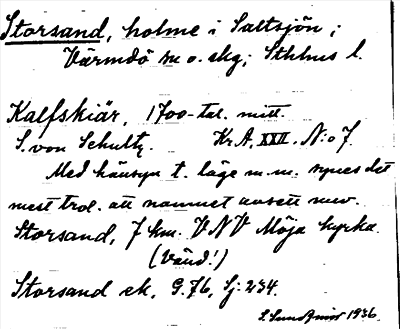 Storsand, holme i Saltsjön;
Värmdö sn o. skg; Sthlms l.
Kalfskiär, 1700-tal. mitt.
S. von Schultz. Kr.A. XXII. N:o 7.
Med hänsyn t. läge m.m. synes det
mest trol. att namnet avsett nuv.
Storsand, 7 km. VNV Möja kyrka.
(Vänd!)
Storsand ek. G.76, Sj: 234.
1936